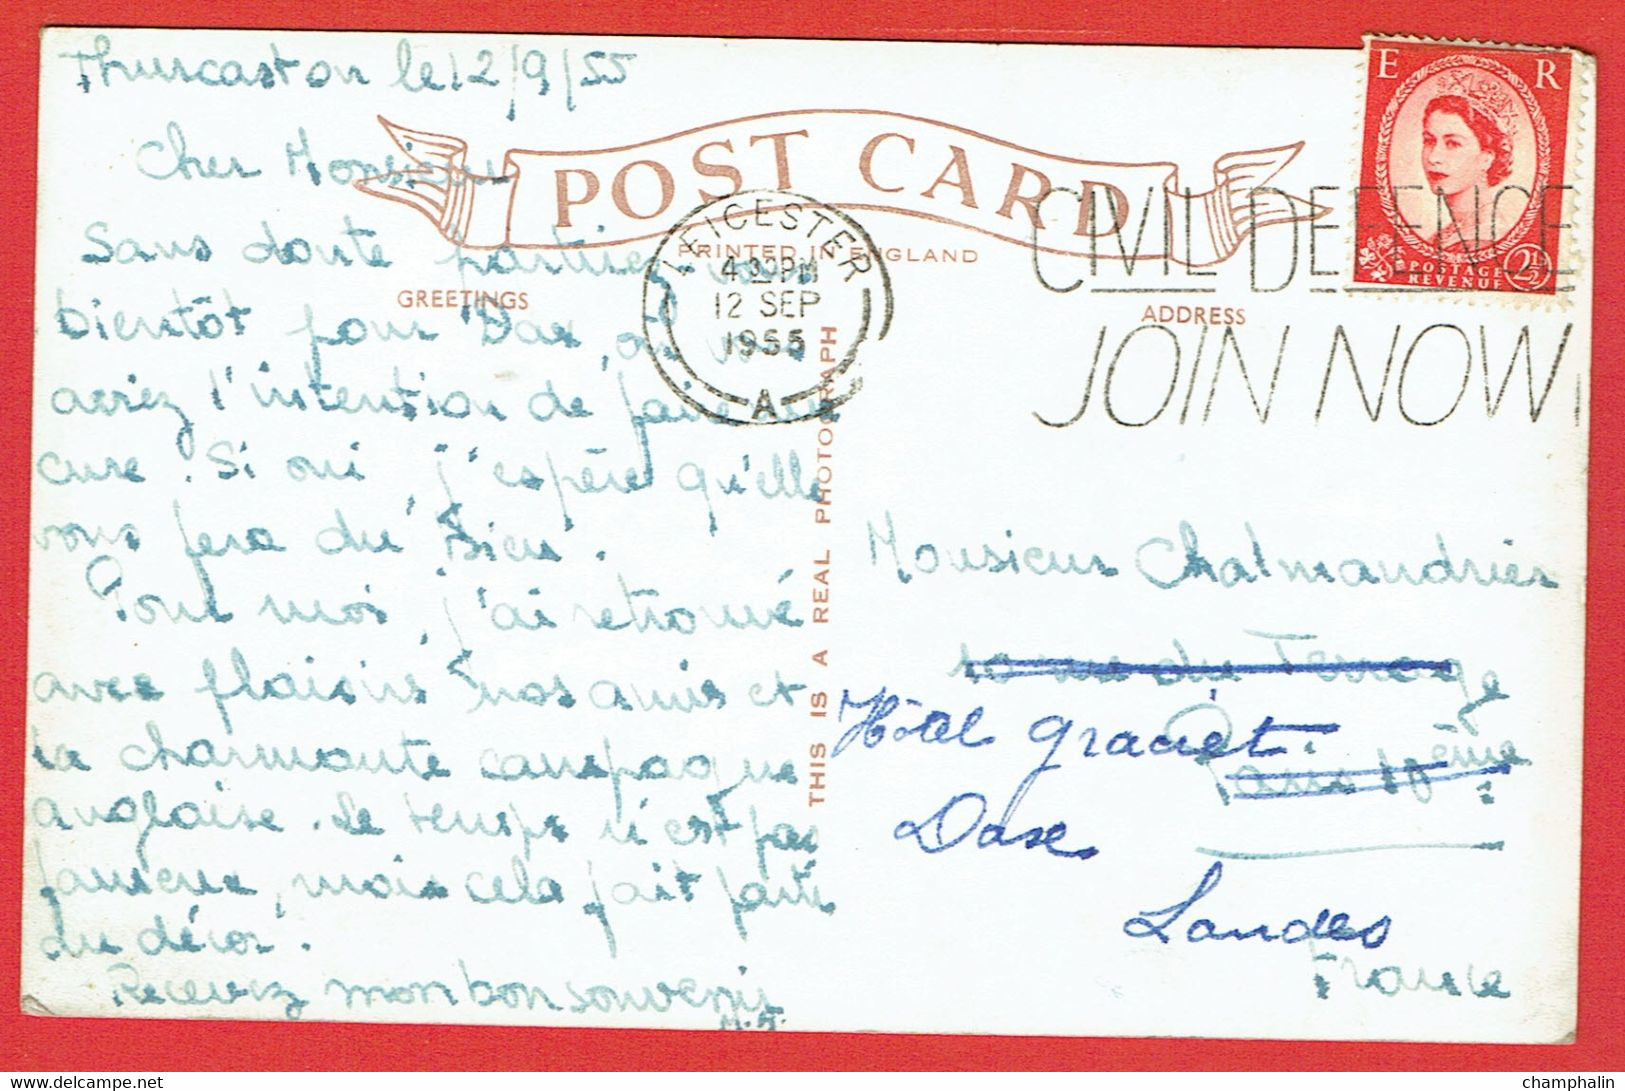 Thurcaston le 12/9/55
Cher Monsieur
Sans doute partirez vous
bientôt pour Dax, où vous
aviez l'intention de faire une
cure. Si oui, j'espère qu'elle
vous fera du bien.
Pour moi, j'ai retrouvé
avec plaisir nos amis et
la charmante campagne
anglaise. Le temps n'est pas
fameux, mais cela fait partie
du décor.
Recevez mon bon souvenir
POST CARD
PRINTED IN ENGLAND
GREETINGS
ADDRESS
THIS IS A REAL PHOTOGRAPH
LEICESTER
PM
12 SEP
1955
A
CIVIL DEFENCE
JOIN NOW
E R
POSTAGE
REVENUE
2½D
Monsieur Chalmandrier
10 rue du Terrage
Paris 10ème
Hôtel Graciet.
Dax
Landes
France
www.delcampe.net
champhalin